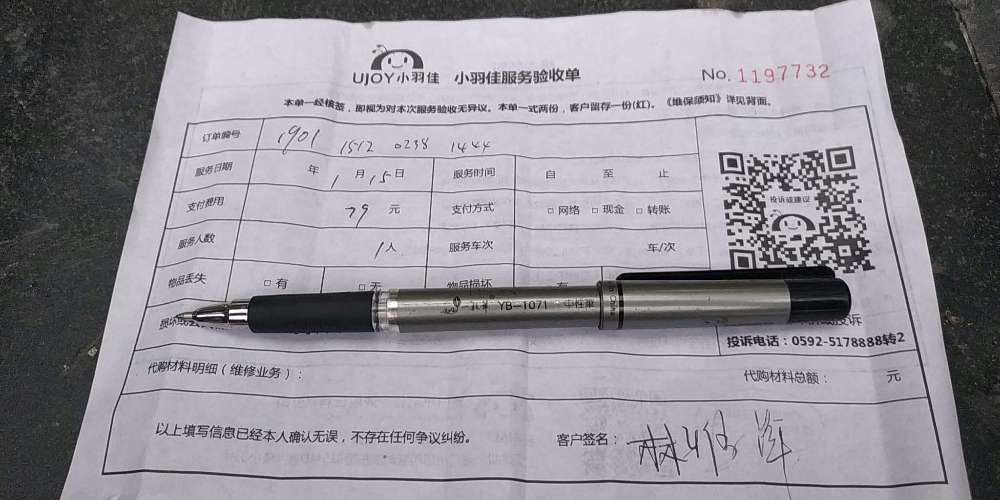 UJOY小羽佳 小羽佳服务验收单 No. 1197732
本单一经核签，即视为对本次服务验收无异议。本单一式两份，客户留存一份(红)。《维保须知》详见背面。
订单编号 1901 1512 0238 1444
服务日期 年 1月15日 服务时间 自 至 止
支付费用 79 元 支付方式 □网络 □现金 □转账
投诉或建议
服务人数 1人 服务车次 车/次
物品丢失 □有 □无 物品损坏
YB-1071 中性笔
投诉
投诉电话：0592-5178888转2
代购材料明细（维修业务）： 代购材料总额： 元
以上填写信息已经本人确认无误，不存在任何争议纠纷。 客户签名：